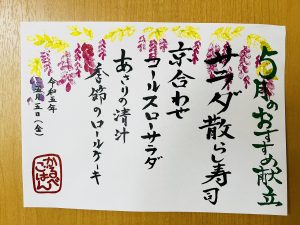 5月のおすすめ献立
サラダ散らし寿司
京合わせ
コールスローサラダ
あさりの清汁
季節のロールケーキ
令和五年
五月五日(金)
ごはん